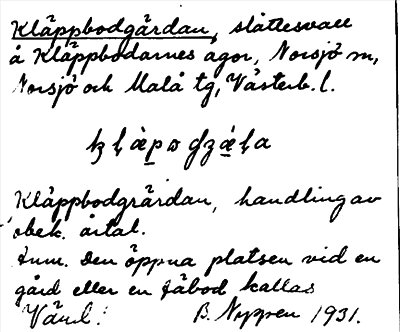 Kläppbodgärdan, slåttesvall
å Kläppbodarnes ägor, Norsjö sn,
Norsjö och Malå tg, Västerb. l.
Kläppbodgrärdan, handling av
obek. årtal.
Anm. Den öppna platsen vid en
gård eller en fäbod kallas
B. Nygren 1931.